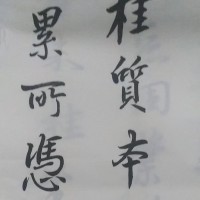 桂質本
累所憑